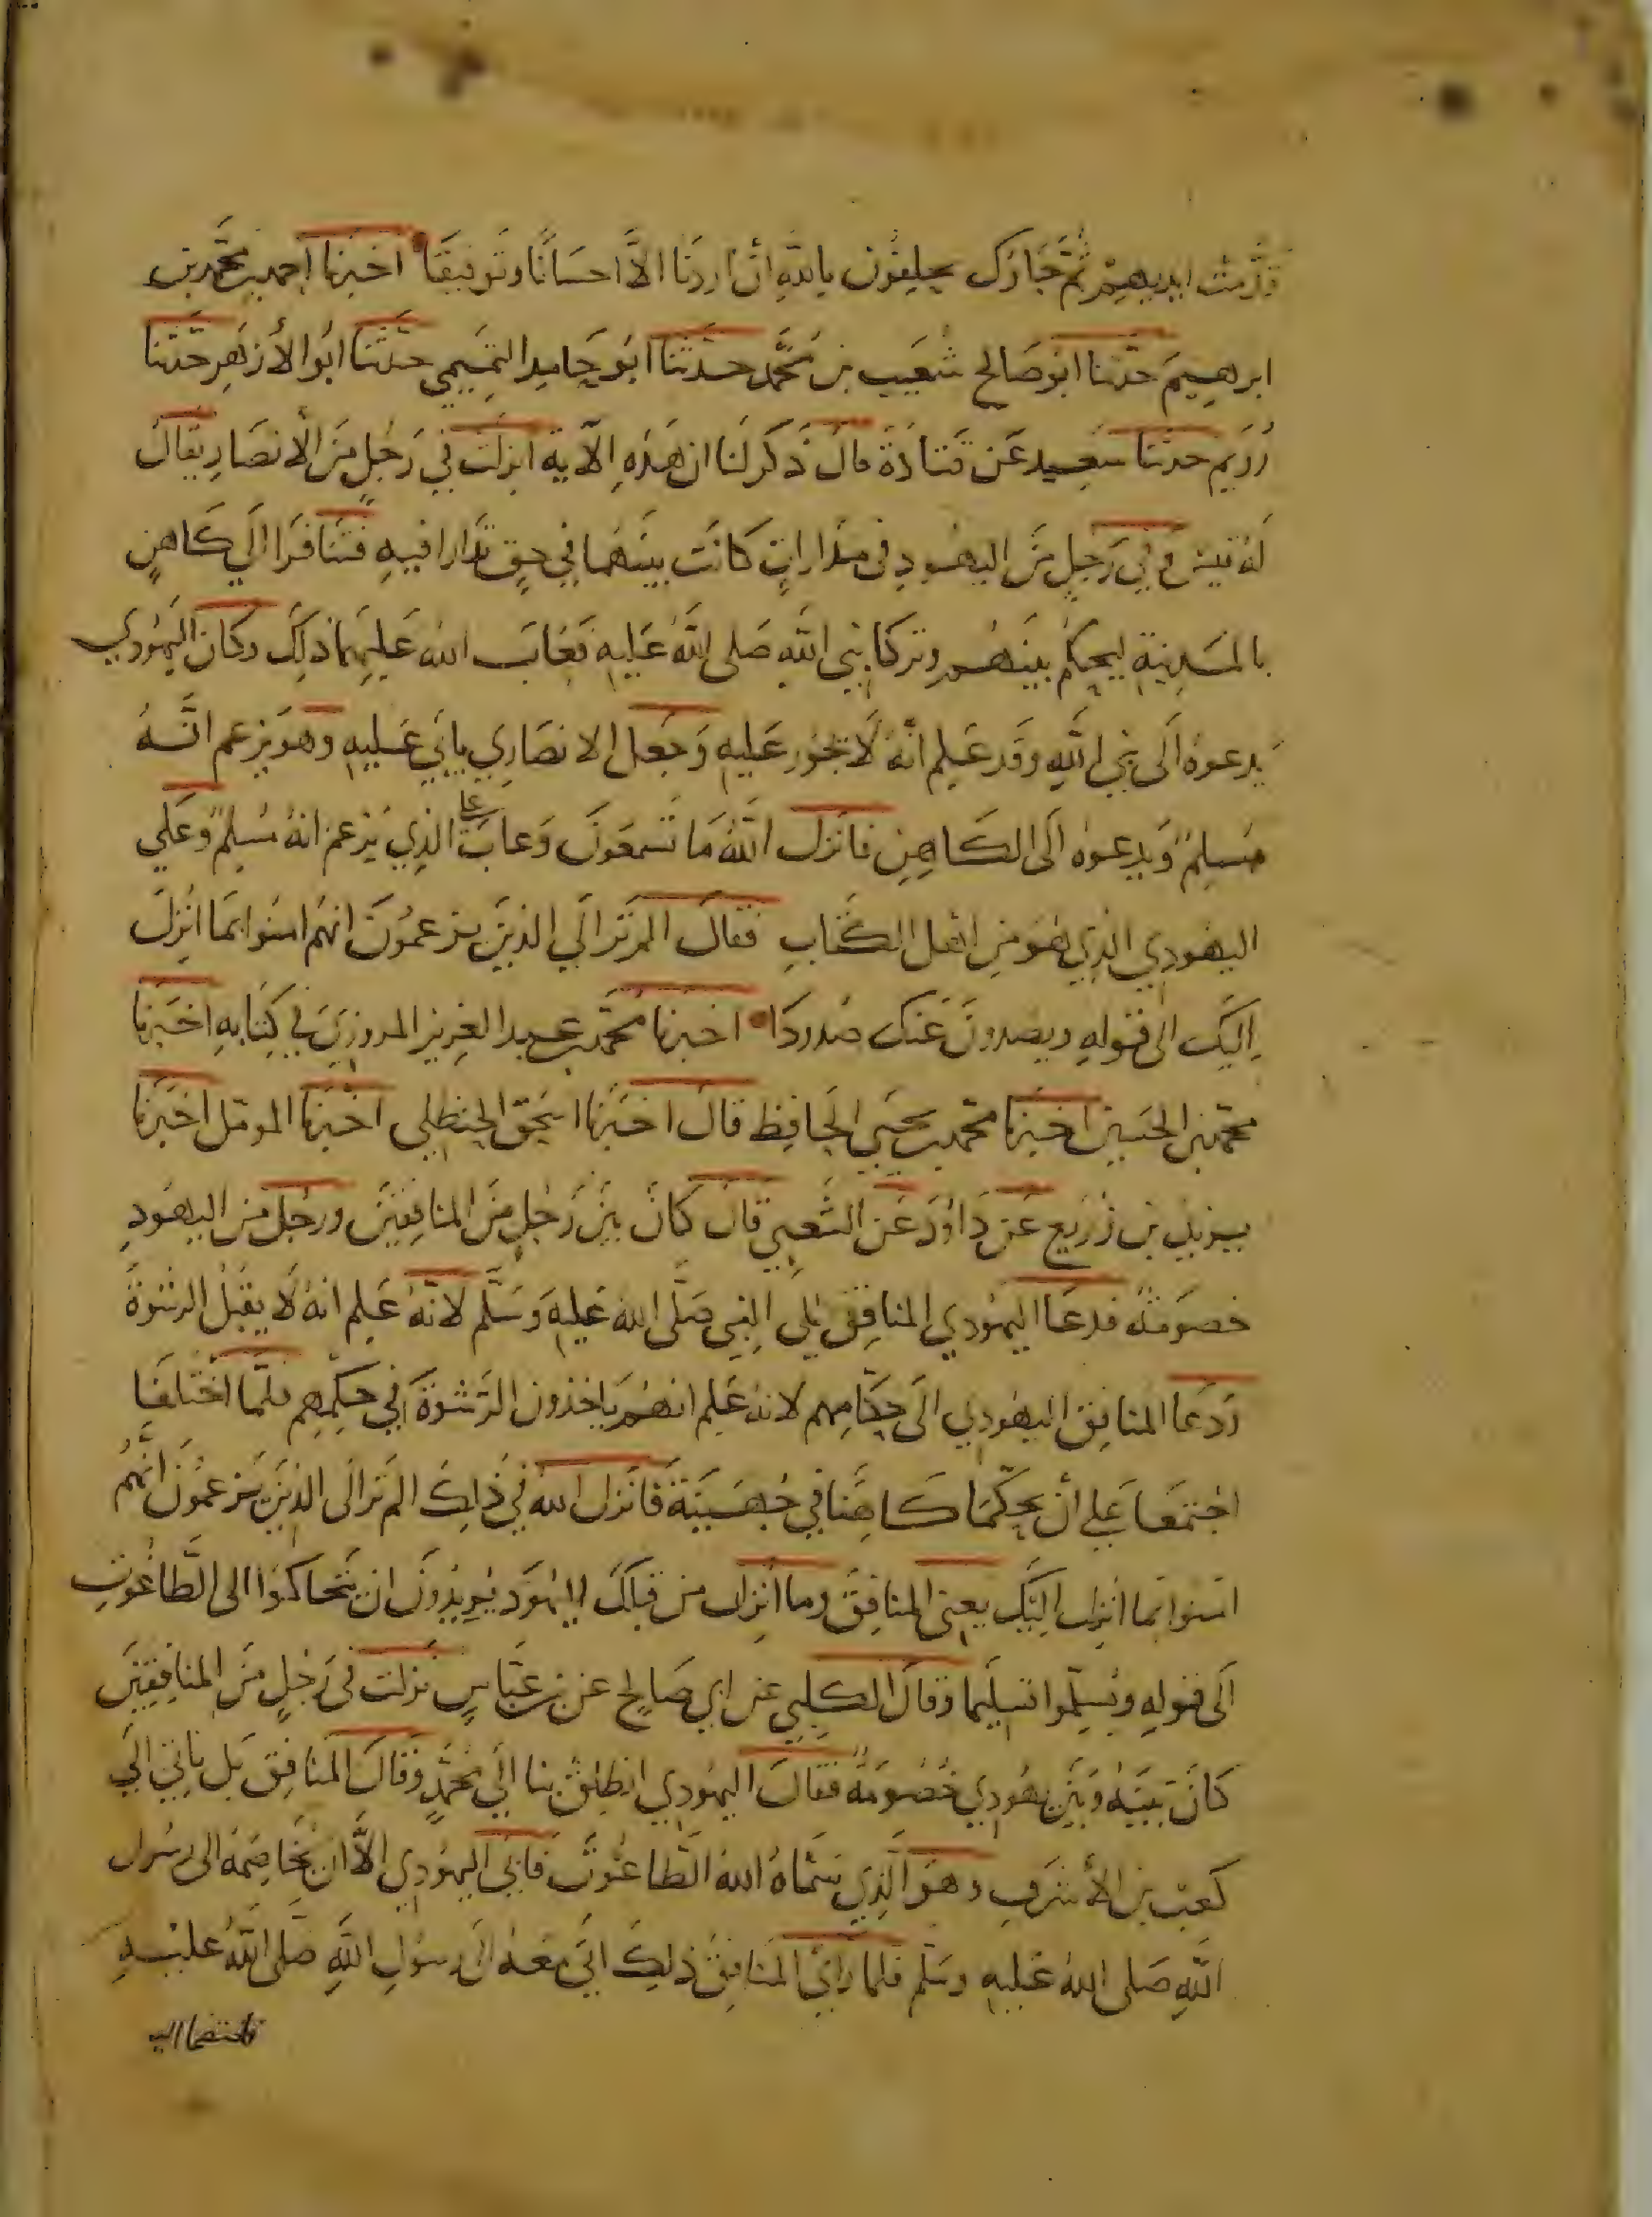 قدمت ايديهم ثم جاؤك يحلفون بالله ان اردنا الا احسانا وتوفيقا اخبرنا احمد بن محمد بن
ابرهيم حدثنا ابو صالح شعيب بن محمد حدثنا ابو حامد التميمي حدثنا ابو الأزهر حدثنا
رويم حدثنا سعيد عن قتادة قال ذكر لنا ان هذه الآية انزلت في رجل من الأنصار يقال
له قيس وفي رجل من اليهود في مدارات كانت بينهما في حق تدارا فيه فتنافرا الي كاهن
بالمدينة ليحكم بينهم وتركا نبي الله صلى الله عليه فعاب الله عليهما ذلك وكان اليهودي
يدعوه الى نبي الله وقد علم انه لا يجور عليه وجعل الانصاري يابي عليه وهو يزعم انه
مسلم ويدعوه الى الكاهن فانزل الله ما تسمعون وعاب على الذي يزعم انه مسلم وعلي
اليهودي الذي هو من اهل الكتاب فقال الم تر الي الذين يزعمون انهم امنوا بما انزل
اليك الى قوله ويصدون عنك صدودا اخبرنا محمد بن عبد العزيز المروزي في كتابه اخبرنا
محمد بن الحسين اخبرنا محمد بن يحيي الحافظ قال اخبرنا اسحق الحنظلي اخبرنا المومل اخبرنا
يزيد بن زريع عن داود عن الشعبي قال كان بين رجل من المنافقين ورجل من اليهود
خصومة فدعا اليهودي المنافق الى النبي صلى الله عليه وسلم لانه علم انه لا يقبل الرشوة
ودعا المنافق اليهودي الى حكامهم لانه علم انهم ياخذون الرشوة في حكمهم فلما اختلفا
اجتمعا علي أن يحكما كاهنا في جهينة فانزل الله في ذلك الم تر الى الذين يزعمون انهم
امنوا بما انزل اليك يعني المنافق وما انزل من قبلك اليهود يريدون ان يتحاكموا الى الطاغوت
الى قوله ويسلموا تسليما وقال الكلبي عن ابي صالح عن بن عباس نزلت في رجل من المنافقين
كان بينه وبين يهودي خصومة فقال اليهودي انطلق بنا الي محمد وقال المنافق بل ناتي الي
كعب بن الأشرف وهو الذي سماه الله الطاغوت فابى اليهودي الا ان يخاصمه الى رسول
الله صلى الله عليه وسلم فلما راى المنافق ذلك اتى معه الى رسول الله صلى الله عليه
فاختصما اليه